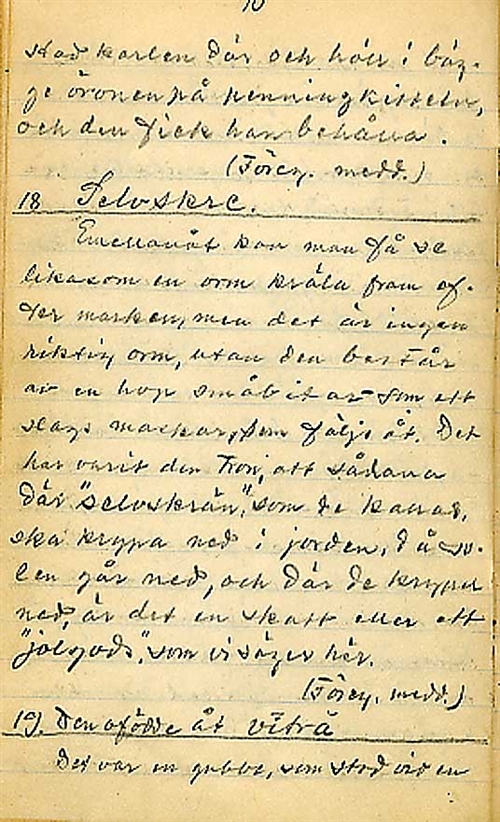 10
stod karlen där och höll i båg-
ge öronen på penningkitteln,
och den fick han behålla.
(Förey. medd.)
18 Selvskre.
Emellanåt kan man få se
likasom en orm kräla fram ef-
ter marken, men det är ingen
riktig orm, utan den består
av en hop småbitar som ett
slags maskar, som följs åt. Det
har varit den tron, att sådana
där "selvskrän", som de kallas,
ska krypa ned i jorden, då so-
len går ned, och där de kryper
ned, är det en skatt eller ett
"jolgods", som vi säger här.
(Förey. medd.)
19. Den ofödde åt vitrå
Det var en gubbe, som stod vid en